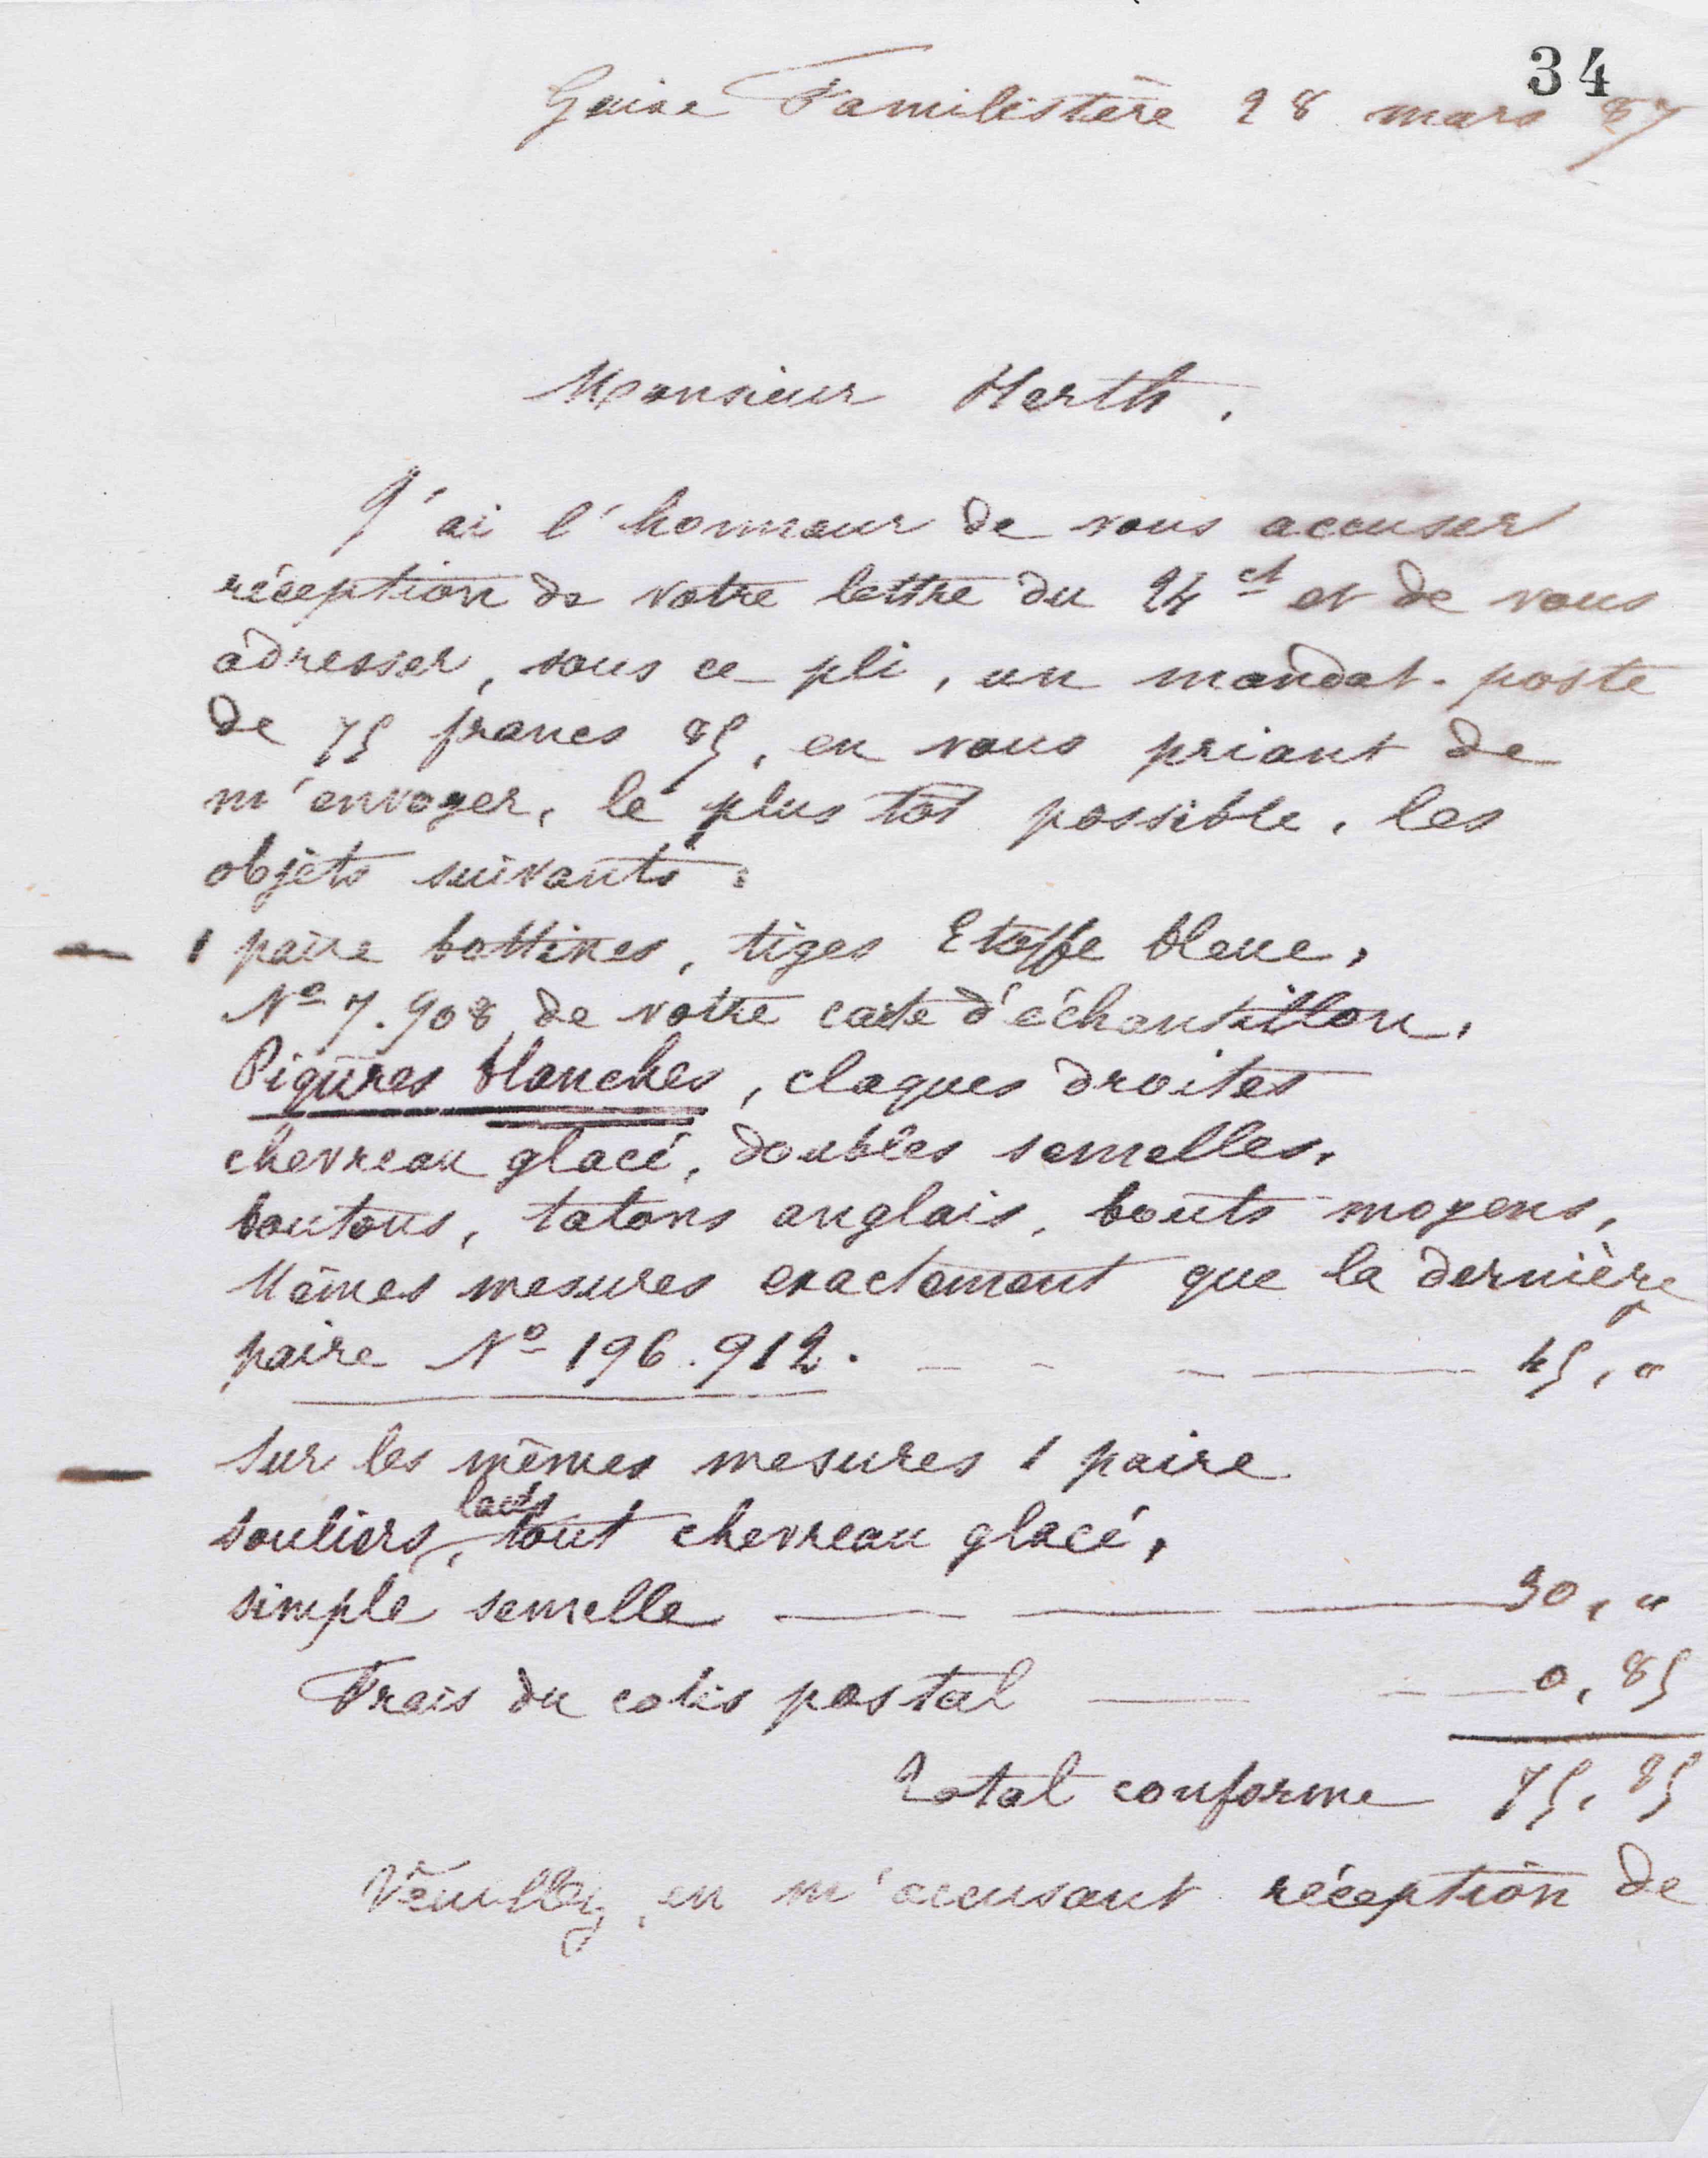 34
Guise Familistère 28 mars 87
Monsieur Herth.
J'ai l'honneur de vous accuser
réception de votre lettre du 24 ct et de vous
adresser, sous ce pli, un mandat-poste
de 75 francs 85, en vous priant de
m'envoyer, le plus tôt possible, les
objets suivants :
— 1 paire bottines, tiges Etoffe bleue,
No 7.908 de votre carte d'échantillon,
Piqûres blanches, claques droites
chevreau glacé, doubles semelles,
boutons, talons anglais, bouts moyens,
Mêmes mesures exactement que la dernière
paire No 196.912. — — — — 45, "
— Sur les mêmes mesures 1 paire
souliers, lacés tout chevreau glacé,
simple semelle — — — 30, "
Frais du colis postal — — — 0, 85
Total conforme 75, 85
Veuillez, en m'accusant réception de